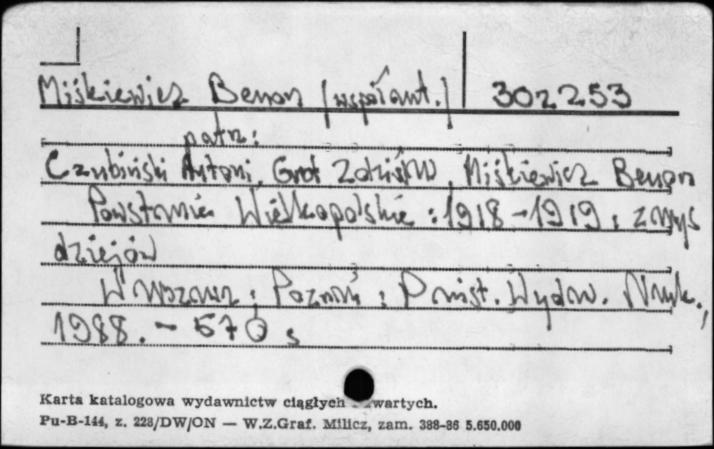 Miśkiewicz Benon [współaut.] 302253
patrz:
Czubiński Antoni, Grot Zdzisław, Miśkiewicz Benon
Powstanie Wielkopolskie : 1918-1919 : zarys
dziejów
Warszawa ; Poznań : Państ. Wydaw. Nauk.,
1988. - 570 s
Karta katalogowa wydawnictw ciągłych wartych.
Pu-B-144, z. 228/DW/ON — W.Z.Graf. Milicz, zam. 388-86 5.650.000